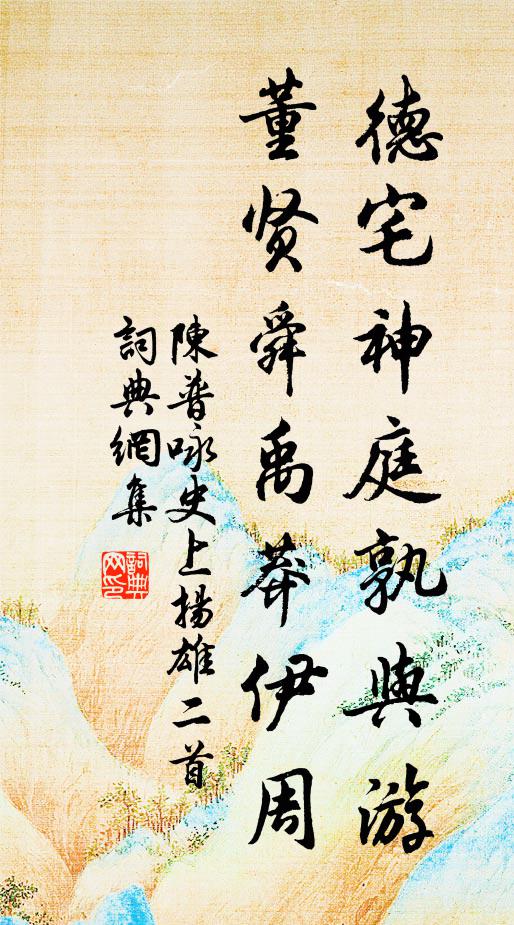 德宅神庭孰與游
董贤舜禹莽伊周
陳普咏史上揚雄二首
詞典網集
詞典
网印